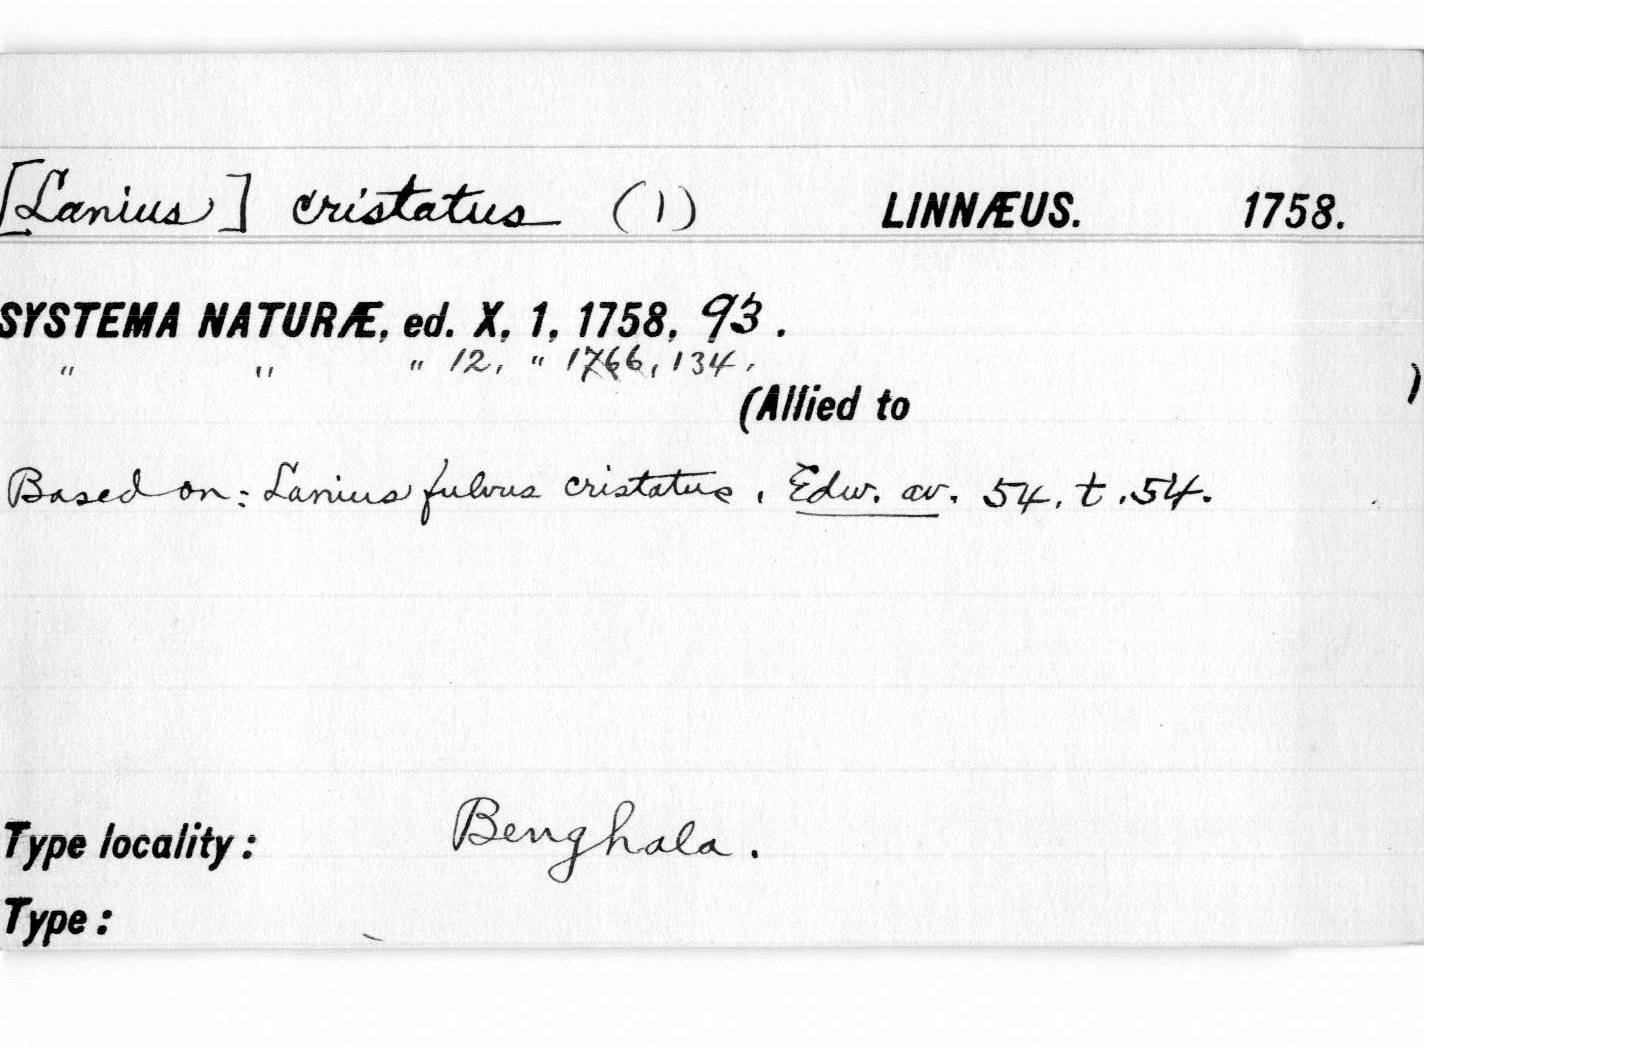 [Lanius] cristatus (1) LINNÆUS. 1758.
SYSTEMA NATURÆ, ed. X, 1, 1758, 93.
" " " 12, " 1766, 134.
(Allied to )
Based on: Lanius fulvus cristatus, Edw. av. 54, t. 54.
Type locality: Benghala.
Type: